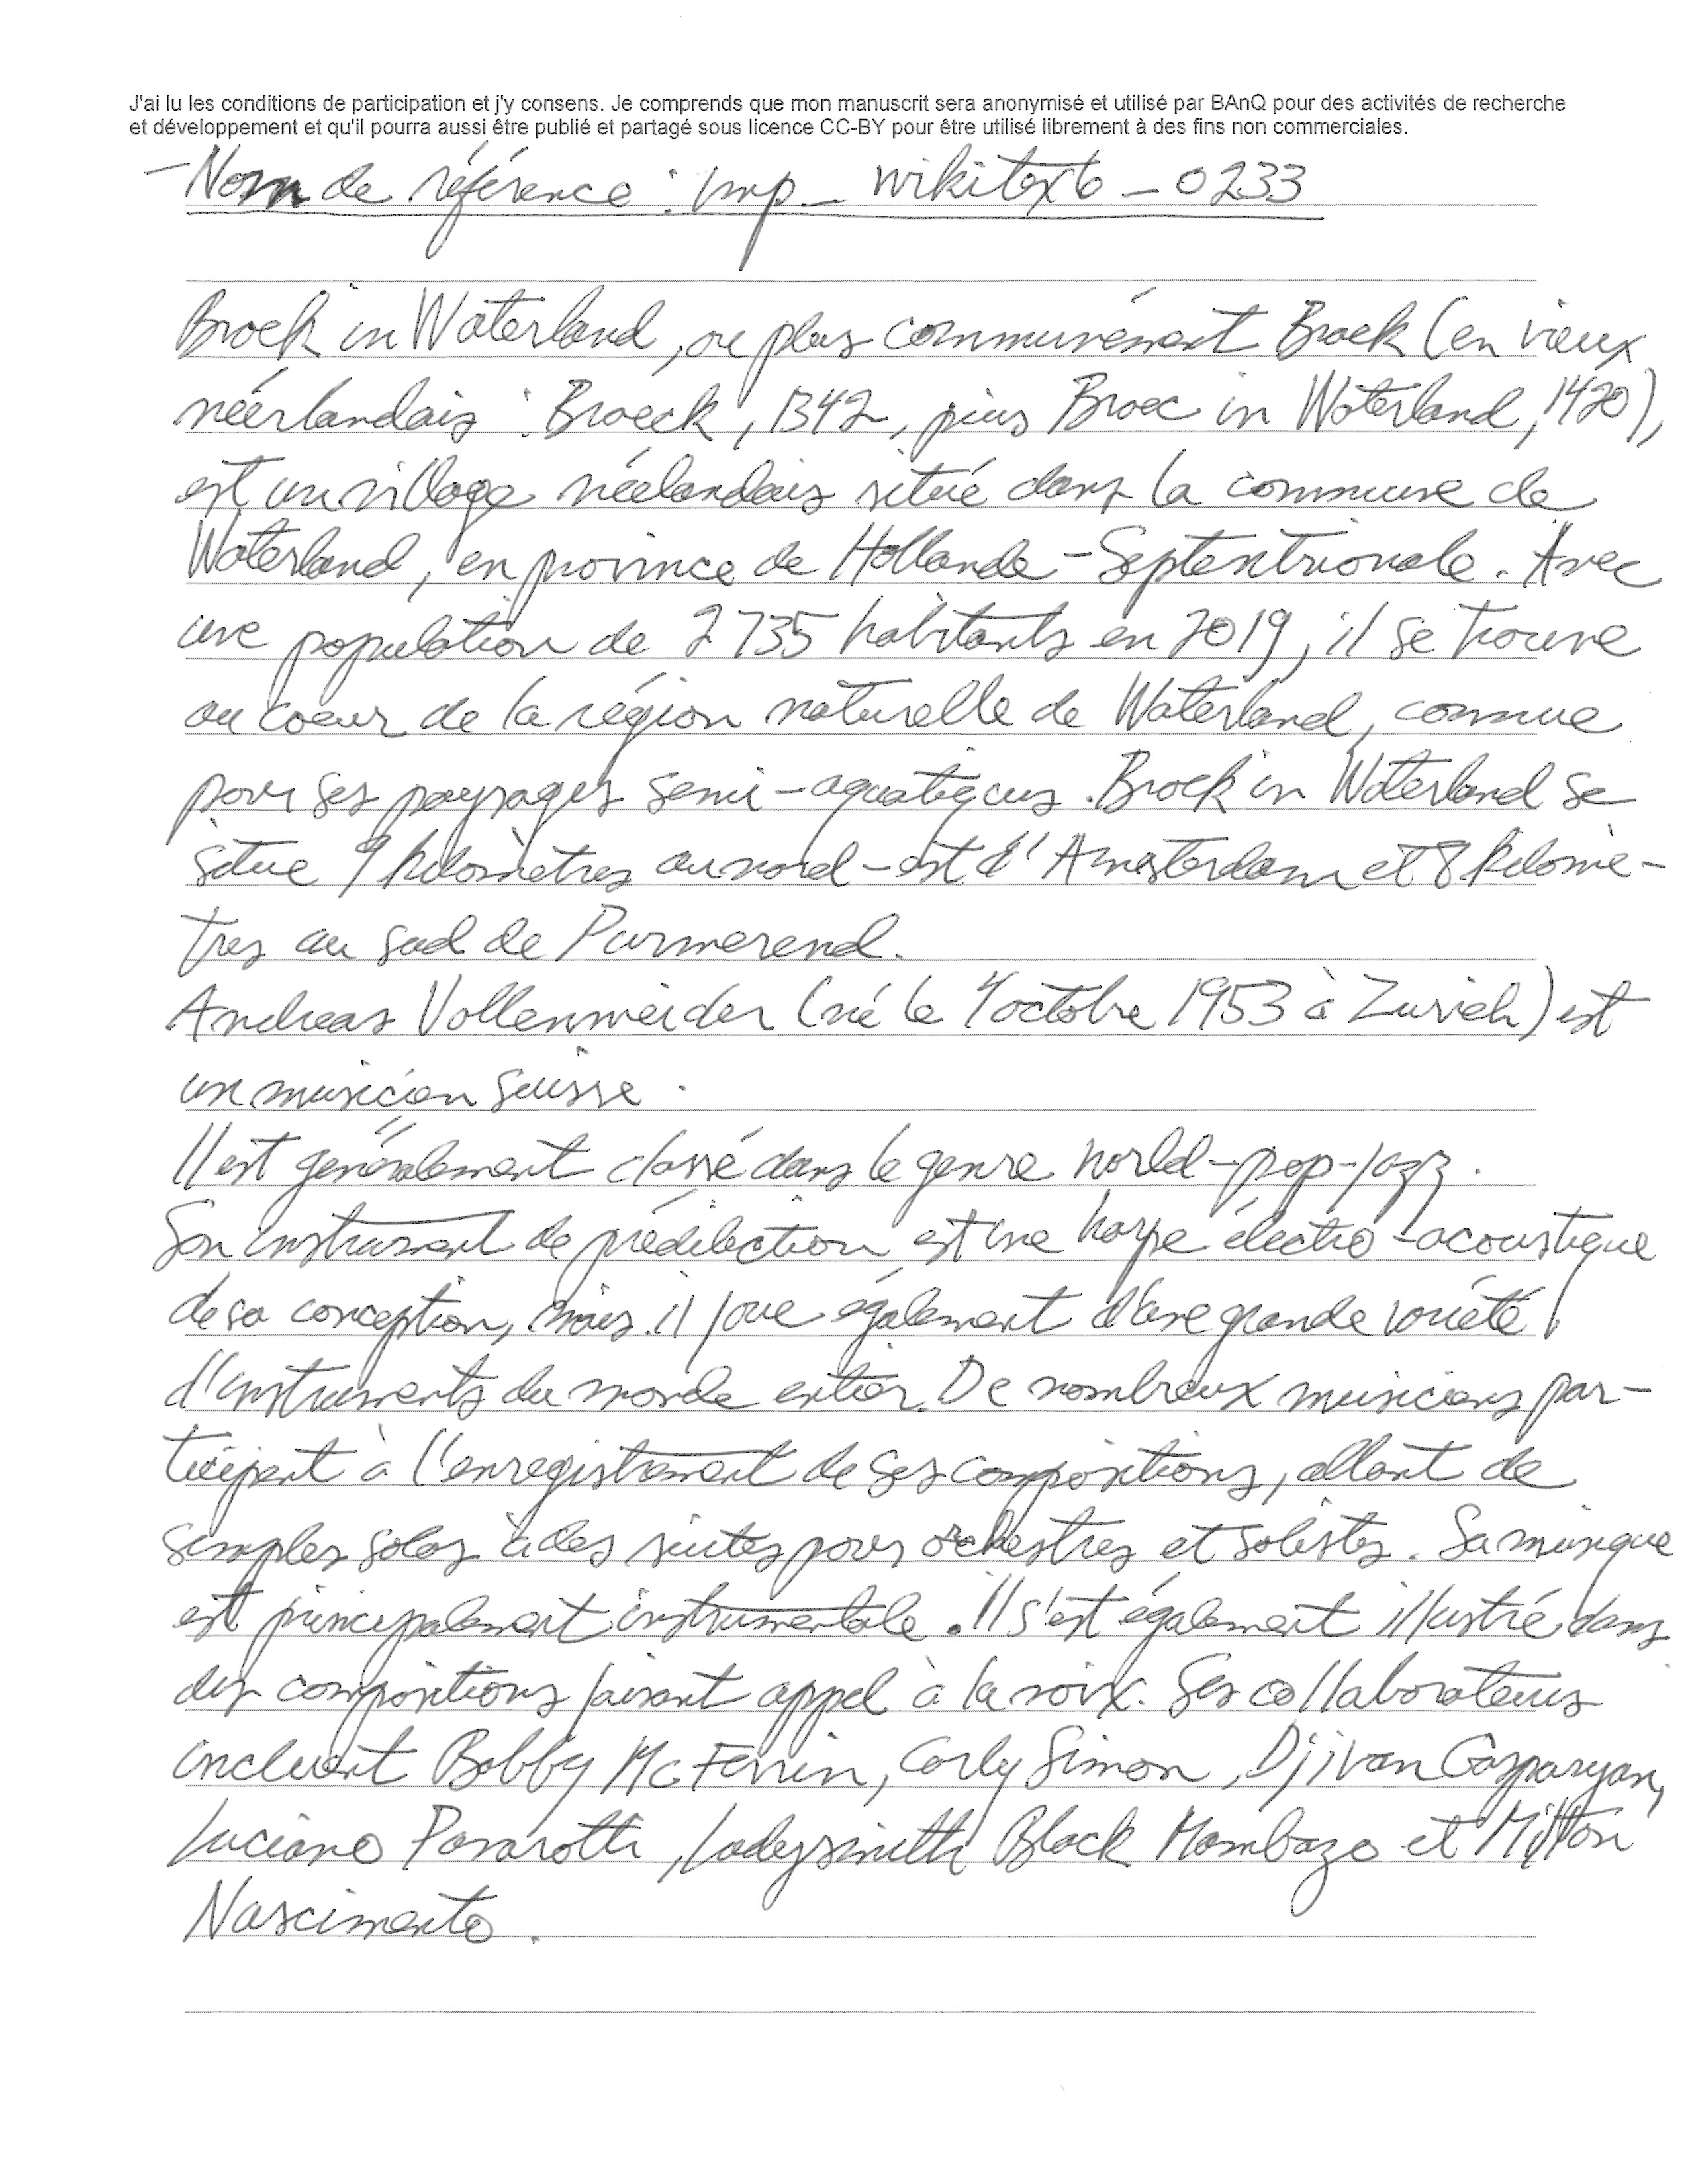 J'ai lu les conditions de participation et j'y consens. Je comprends que mon manuscrit sera anonymisé et utilisé par BAnQ pour des activités de recherche
et développement et qu'il pourra aussi être publié et partagé sous licence CC-BY pour être utilisé librement à des fins non commerciales.
- Nom de référence : imp_wikitexte_0233
Broek in Waterland, ou plus communément Broek (en vieux
néerlandais : Broeck, 1342, puis Broec in Waterland, 1420),
est un village néelandais situé dans la commune de
Waterland, en province de Hollande-Septentrionale. Avec
une population de 2 735 habitants en 2019, il se trouve
au coeur de la région naturelle de Waterland, connue
pour ses paysages semi-aquatiques. Broek in Waterland se
situe 9 kilomètres au nord-est d'Amsterdam et 8 kilomè-
tres au sud de Purmerend.
Andreas Vollenweider (né le 4 octobre 1953 à Zurich) est
un musicien suisse.
Il est généralement classé dans le genre world-pop-jazz.
Son instrument de prédilection est une harpe électro-acoustique
de sa conception, mais il joue également d'une grande variété
d'instruments du monde entier. De nombreux musiciens par-
ticipent à l'enregistrement de ses compositions, allant de
simples solos à des suites pour orchestres et solistes. Sa musique
est principalement instrumentale. Il s'est également illustré dans
des compositions faisant appel à la voix. Ses collaborateurs
incluent Bobby McFerrin, Carly Simon, Djivan Gasparyan,
Luciano Pavarotti, Ladysmith Black Mambazo et Milton
Nascimento.